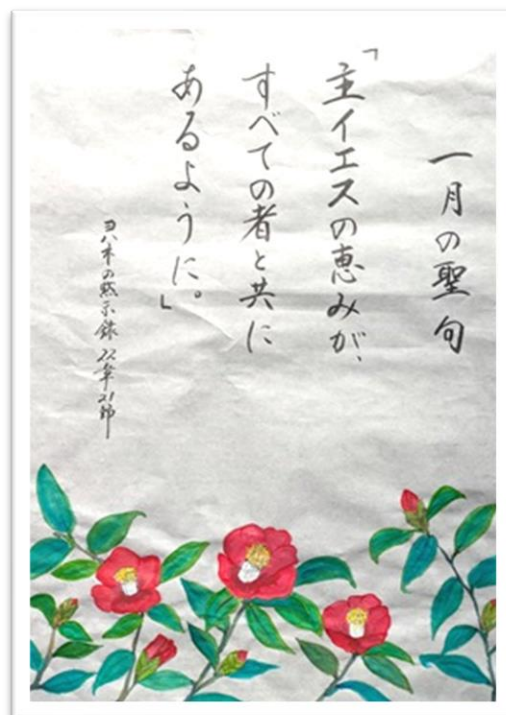 一月の聖句
「主イエスの恵みが、
すべての者と共に
あるように。」
ヨハネの黙示録 22章21節